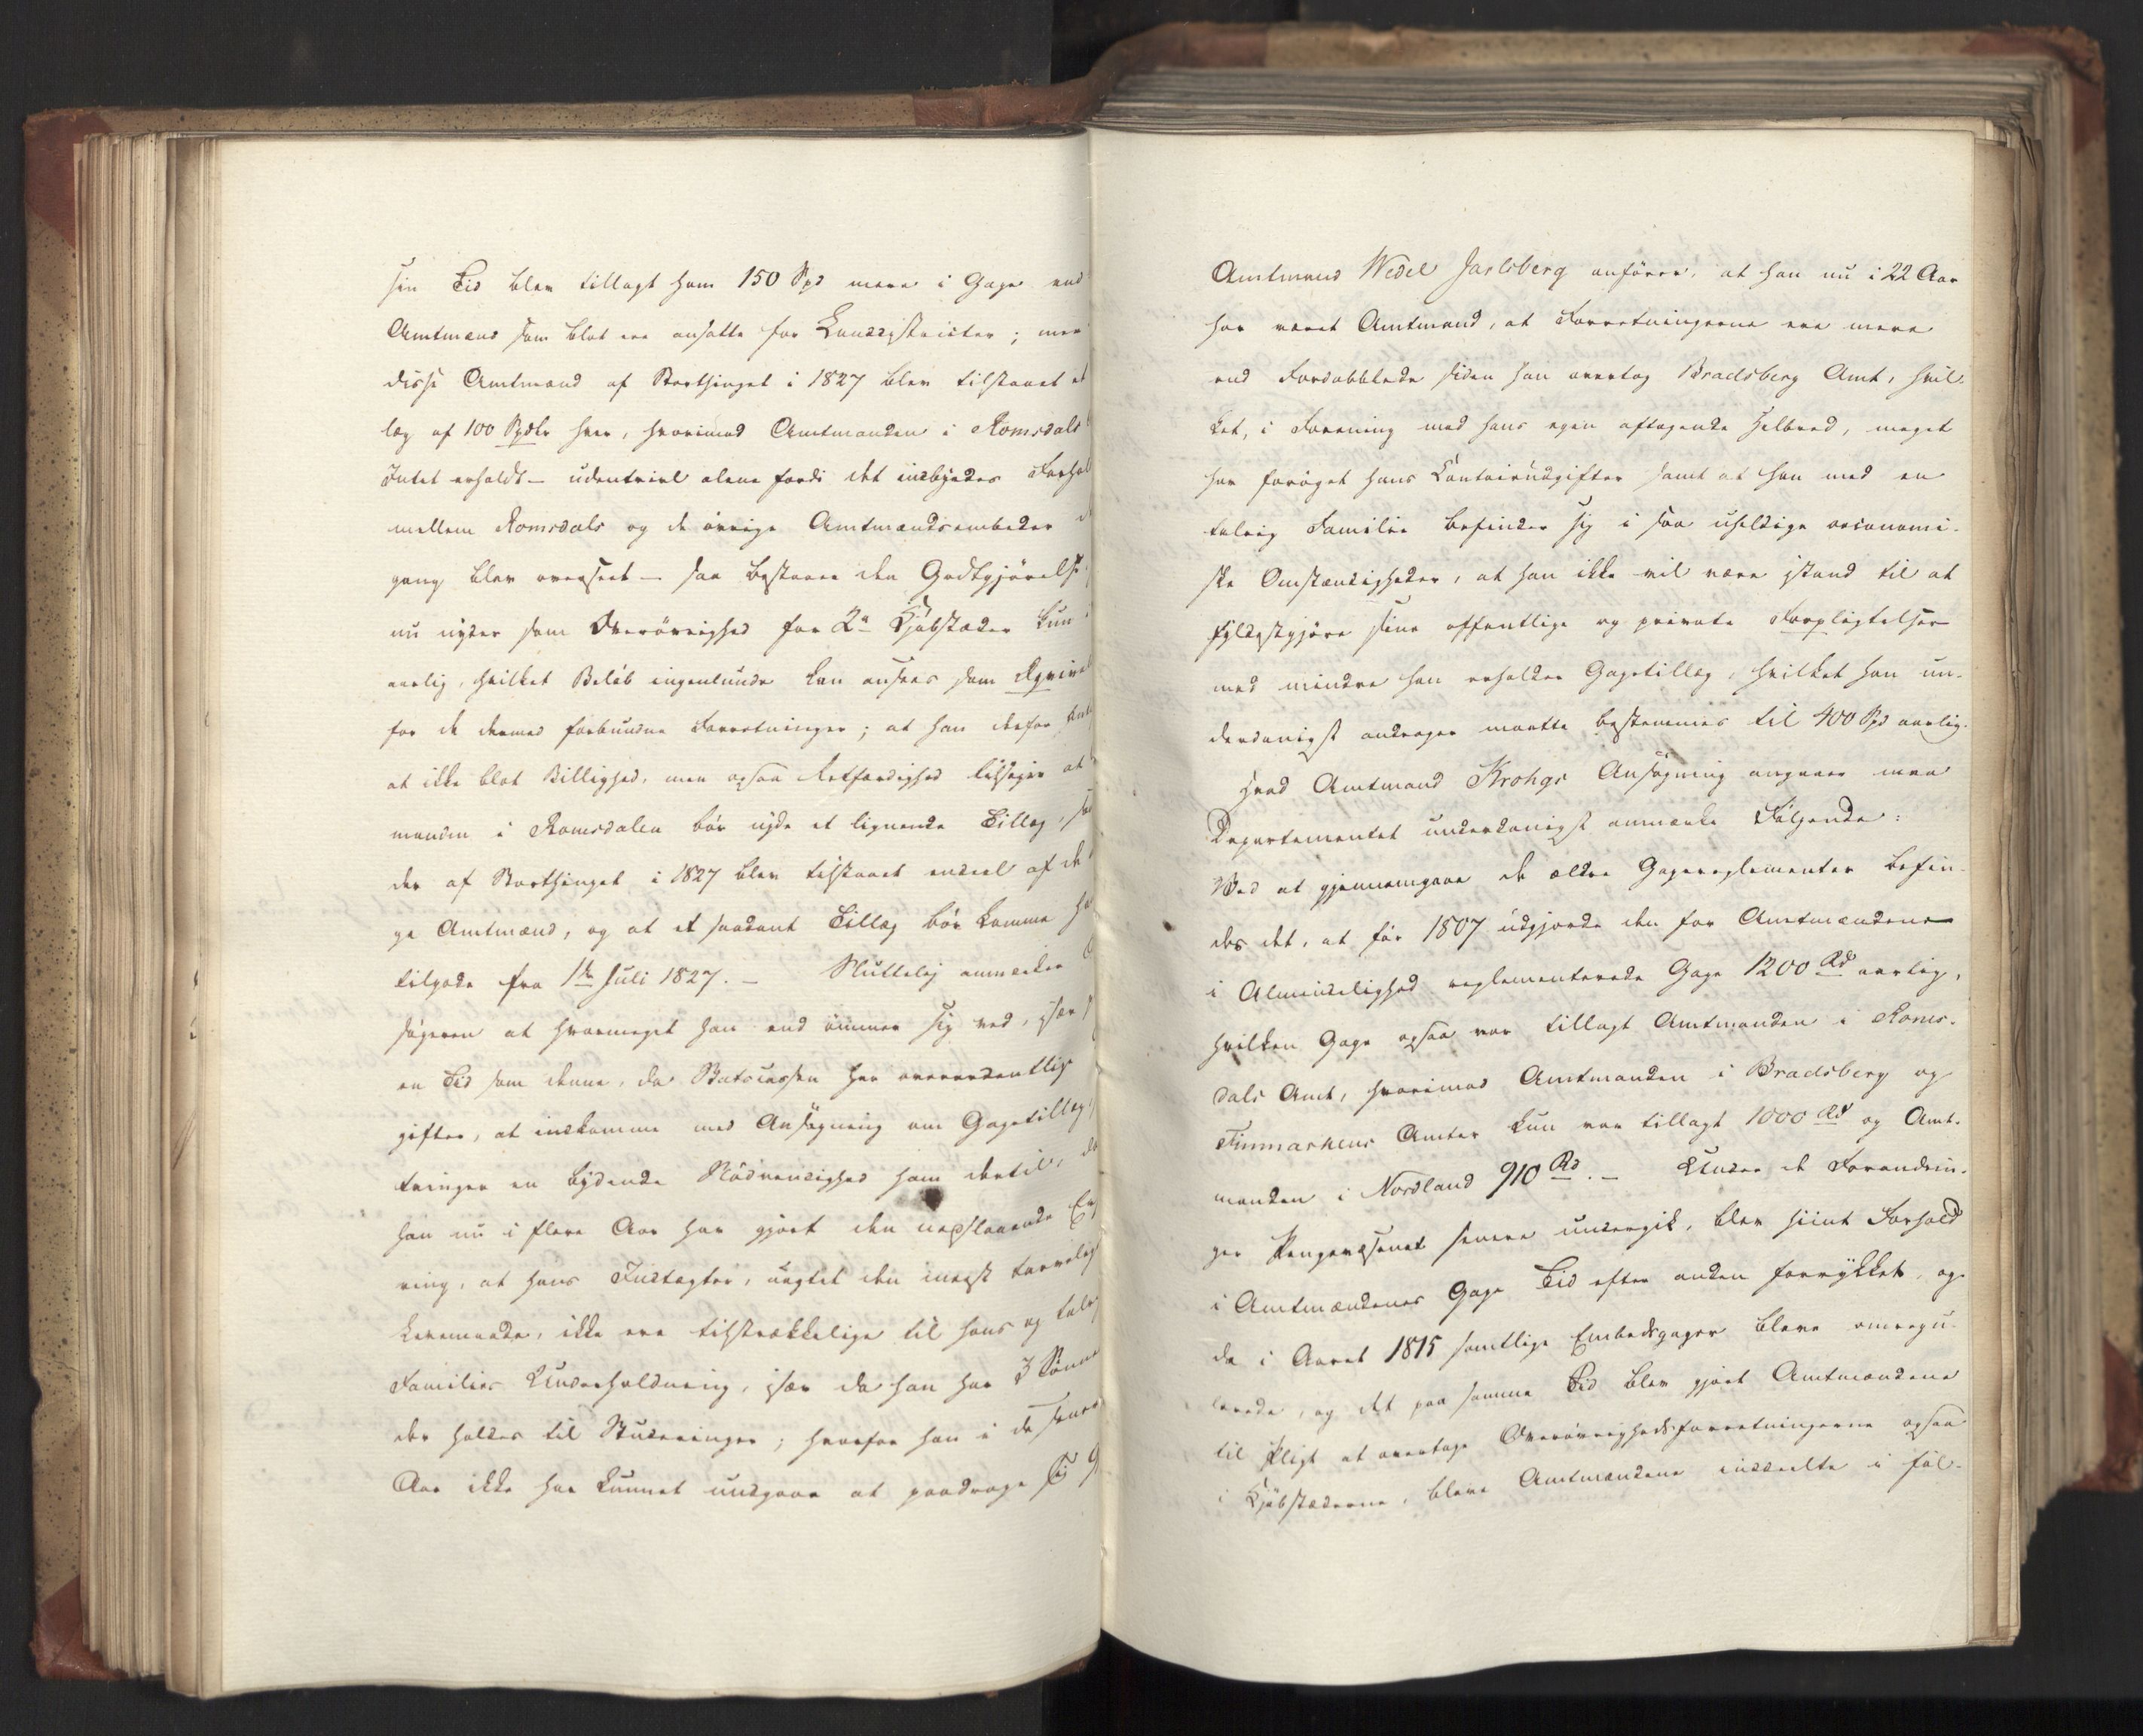 sin Tid blev tillagt ham 150 Spd mere i Gage end
Amtmænd som blot ere ansatte for Landdistricter; men
disse Amtmænd af Storthinget i 1827 blev tilstaaet et
læg af 100 Spdlr hver, hvorimod Amtmanden i Romsdals
Intet erholdt – udentvivl alene fordi det indbyrdes Forhol
mellem Romsdals og de øvrige Amtmandsembeder
gang blev overseet – saa bestaaer den Godtgjørelse
nu nyder som Overøvrighed for 2de Kjøbstæder kun
aarlig, hvilket Beløb ingenlunde kan ansees som Æqvival
for de dermed forbundne Forretninger; at han derfor
at ikke blot Billighed, men ogsaa Retfærdighed tilsiger at
manden i Romsdalen bør nyde et lignende Tillæg, som
der af Storthinget i 1827 blev tilstaaet endeel af de
ge Amtmænd, og at et saadant Tillæg bør komme ha
tilgode fra 1ste Juli 1827. – Sluttelig anmærker
søgeren at hvormeget han end ømmer sig ved, især
en Tid som denne, da Statscassen har overordentlige
gifter, at indkomme med Ansøgning om Gagetillæg,
tvinger en bydende Nødvendighed ham dertil, da
han nu i flere Aar har gjort den nedslaaende Erf
ring, at hans Indtægter, uagtet den meest tarvelig
Levemaade, ikke ere tilstrækkelige til hans og talrig
Families Underholdning, især da han har 3 Sønner
der holdes til Studeringer; hvorfor han i de senere
Aar ikke har kunnet undgaae at paadrage sig G
Amtmand Wedel Jarlsberg anfører, at han nu i 22 Aar
har været Amtmand, at Forretningerne ere mere
end Fordobblede siden han overtog Bradsberg Amt, hvil-
ket, i Forening med hans egen aftagende Helbred, meget
har forøget hans Contoirudgifter samt at han med en
talrig Familie befinder sig i saa uheldige oeconomi-
ske Omstændigheder, at han ikke vil være istand til at
fyldestgjøre sine offentlige og private Forpligtelser
med mindre han erholder Gagetillæg, hvilket han un-
derdanigst andrager maatte bestemmes til 400 Spd aarlig.
Hvad Amtmand Krohgs Ansøgning angaaer maa
Departementet underdanigst anmærke Følgende:
Ved at gjennemgaae de ældre Gagereglementer befin-
des det, at før 1807 udgjorde den for Amtmændene
i Almindelighed reglementerede Gage 1200 Rd aarlig,
hvilken Gage ogsaa var tillagt Amtmanden i Roms-
dals Amt, hvorimod Amtmanden i Bradsberg og
Finmarkens Amter kun var tillagt 1000 Rd og Amt-
manden i Nordland 910 Rd. – Under de Forandrin-
ger Pengevæsenet senere undergik, blev hiint Forhold
i Amtmændenes Gage Tid efter anden forrykket, og
da i Aaret 1815 samtlige Embedsgager bleve omregu-
lerede, og det paa samme Tid blev gjort Amtmændene
til Pligt at overtage Overøvrighedsforretningerne ogsaa
i Kjøbstæderne, bleve Amtmændene inddeelte i føl-